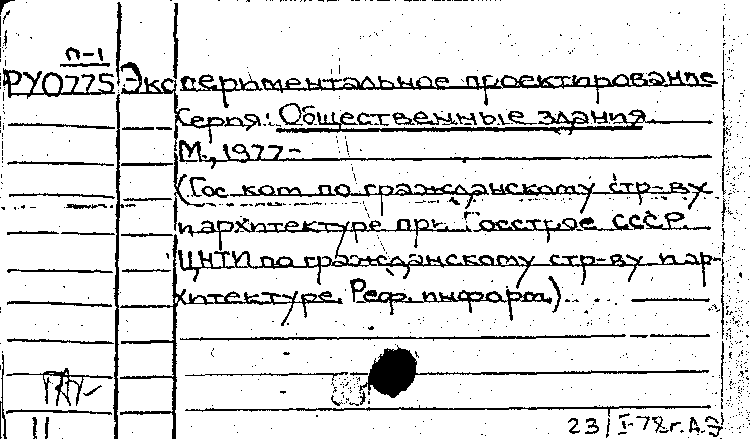 П-1
РУ0775 Экспериментальное проектирование
Серия: Общественные здания.
М., 1977-
(Гос. ком. по гражданскому стр-ву
и архитектуре при Госстрое СССР.
ЦНТИ по гражданскому стр-ву и ар-
хитектуре. Реф. информ.).
11
23/I-78г. А.Э